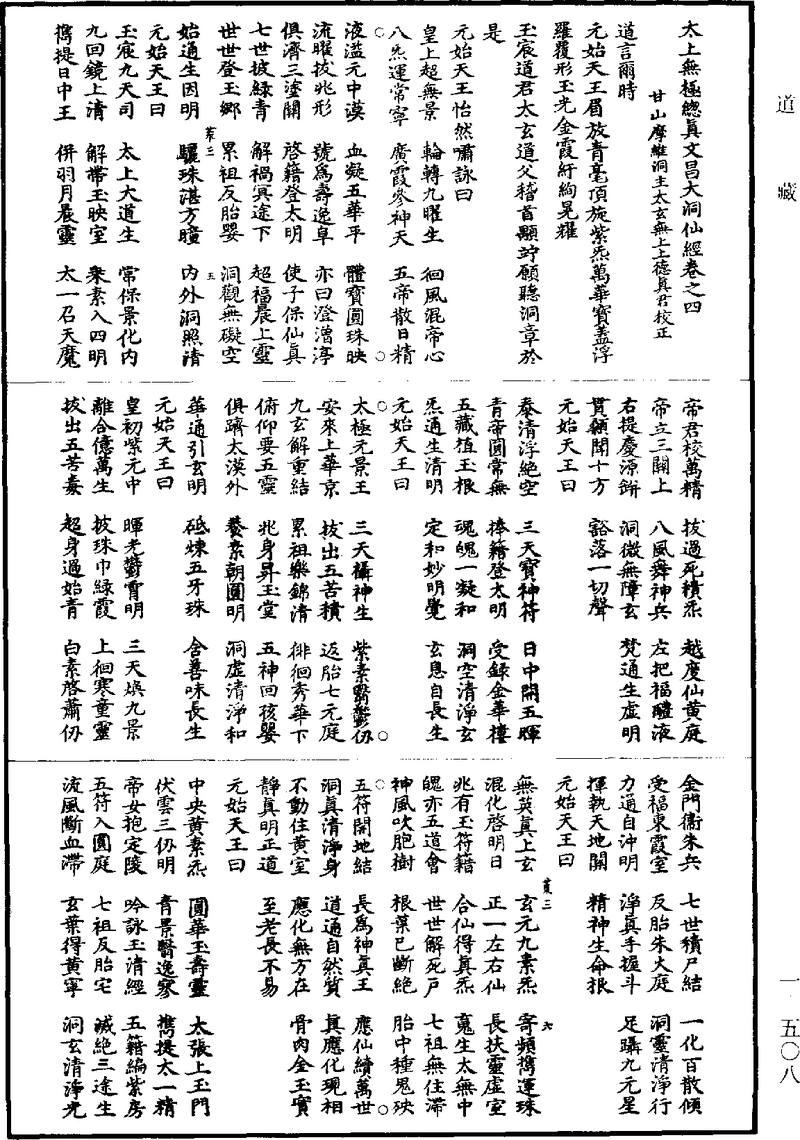 道藏
太上無極總眞文昌大洞仙經卷之四
甘山摩維洞主太玄無上上德眞君校正
道言爾時
元始天王眉放青毫頂旋紫炁萬華寶蓋浮
羅覆形玉光金霞紆絢晃耀
玉宸道君太玄道父稽首顒竚願聽洞章於
是
元始天王怡然嘯詠曰
皇上超無景 輪轉九曜生 徊風混帝心
八炁運常寧 廣霞參神天 五帝散日精
○
液溢元中漠 血凝五華平 體寶圓珠映
流曜拔兆形 號爲壽逸阜 亦曰澄滯渟
俱濟三塗關 啓籍登太明 使子保仙眞
七世披綠青 解禍冥途下 超福晨上靈
世世登玉鄉 累祖反胎嬰 洞觀無礙空
萃三 五
始通生因明 驪珠湛方瞳 內外洞照清
元始天王曰
玉宸九天司 太上大道生 常保景化內
九回鏡上清 解帶玉映室 衆素入四明
攜提日中王 併羽月晨靈 太一召天魔
帝君校萬精 拔過死積炁 越度仙黄庭
帝立三關上 八風舞神兵 左把福醴液
右提慶源餅 洞微無障玄 梵通生虛明
貫領聞十方 豁落一切聲
元始天王曰
泰清浮絶空 三天寶神符 日中開五暉
青帝圓常無 捧籍登太明 受録金華樓
五藏植玉根 魂魄一凝和 洞空清淨玄
炁通生清明 定和妙明覺 玄息自長生
元始天王曰
○
太極元景王 三天攝神生 紫素翳鬱仍
安來上華京 拔出五苦積 返胎七元庭
九玄解重結 累祖樂錦清 徘徊秀華下
俯仰要五靈 兆身昇玉堂 五神回孩嬰
俱躋太漠外 養素朝圓明 洞虛清淨和
華通引玄明 砥煉五牙珠 含善味長生
元始天王曰
皇初紫元中 暉光鬱霄明 三天煥九景
離合億萬生 披珠巾緑霞 上徊寒童靈
拔出五苦毒 超身過始青 白素啓蕭仍
金門衞朱兵 七世積尸結 一化百散傾
受福東霞室 反胎朱火庭 洞靈清淨行
力通自沖明 淨眞手握斗 足躡九元星
揮執天地關 精神生命根
元始天王曰
萃三 六
無英眞上玄 玄元九素炁 寄頻攜運珠
混化啓明日 正一左右仙 長扶靈虛室
兆有玉符籍 合仙得眞炁 寃生太無中
魄亦五道會 世世解死戸 七祖無住滯
神風吹胞樹 根葉已斷絶 胎中種鬼殃
○
五符開地結 長爲神眞王 應仙續萬世
洞眞清淨身 道通自然質 眞應化現相
不動住黄室 應化無方在 骨肉全玉實
靜眞明正道 至老長不易
元始天王曰
中央黄素炁 圓華玉壽靈 太張上玉門
伏雲三仍明 青景翳逸寥 攜提太一精
帝女抱定陵 吟詠玉清經 五籍編紫房
五符入圓庭 七祖反胎宅 滅絶三途生
流風斷血滯 玄葉得黄寧 洞玄清淨光
一·五〇八